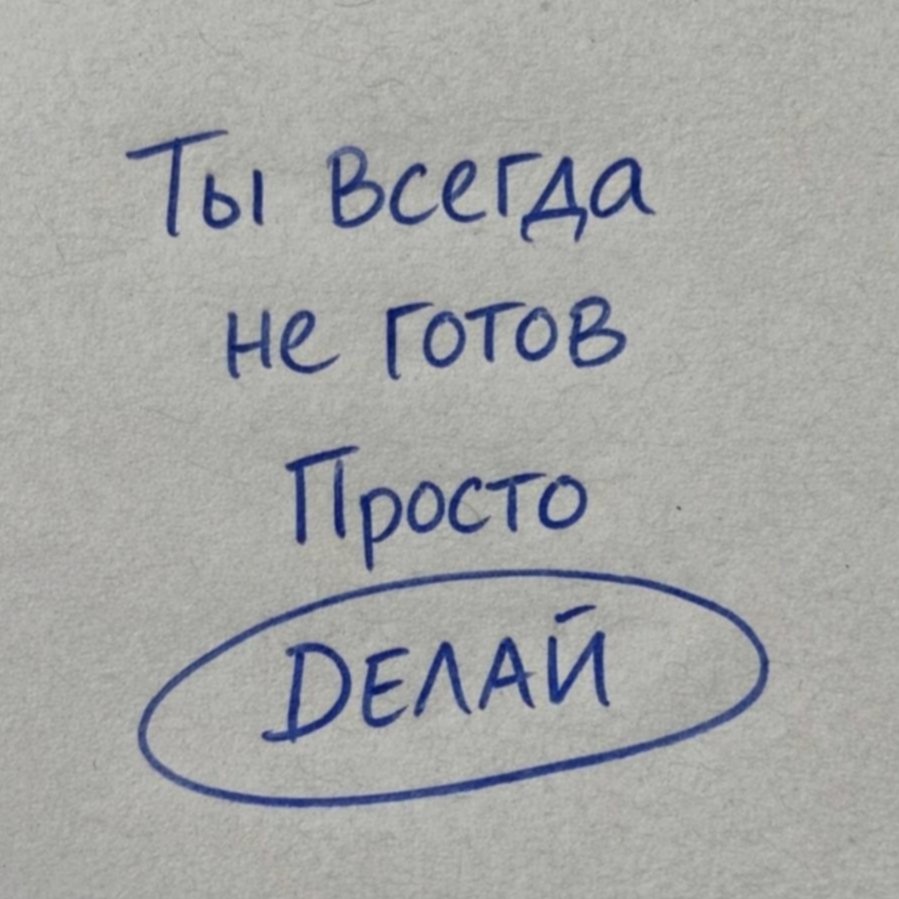 Ты всегда
не готов
Просто
DЕЛАЙ